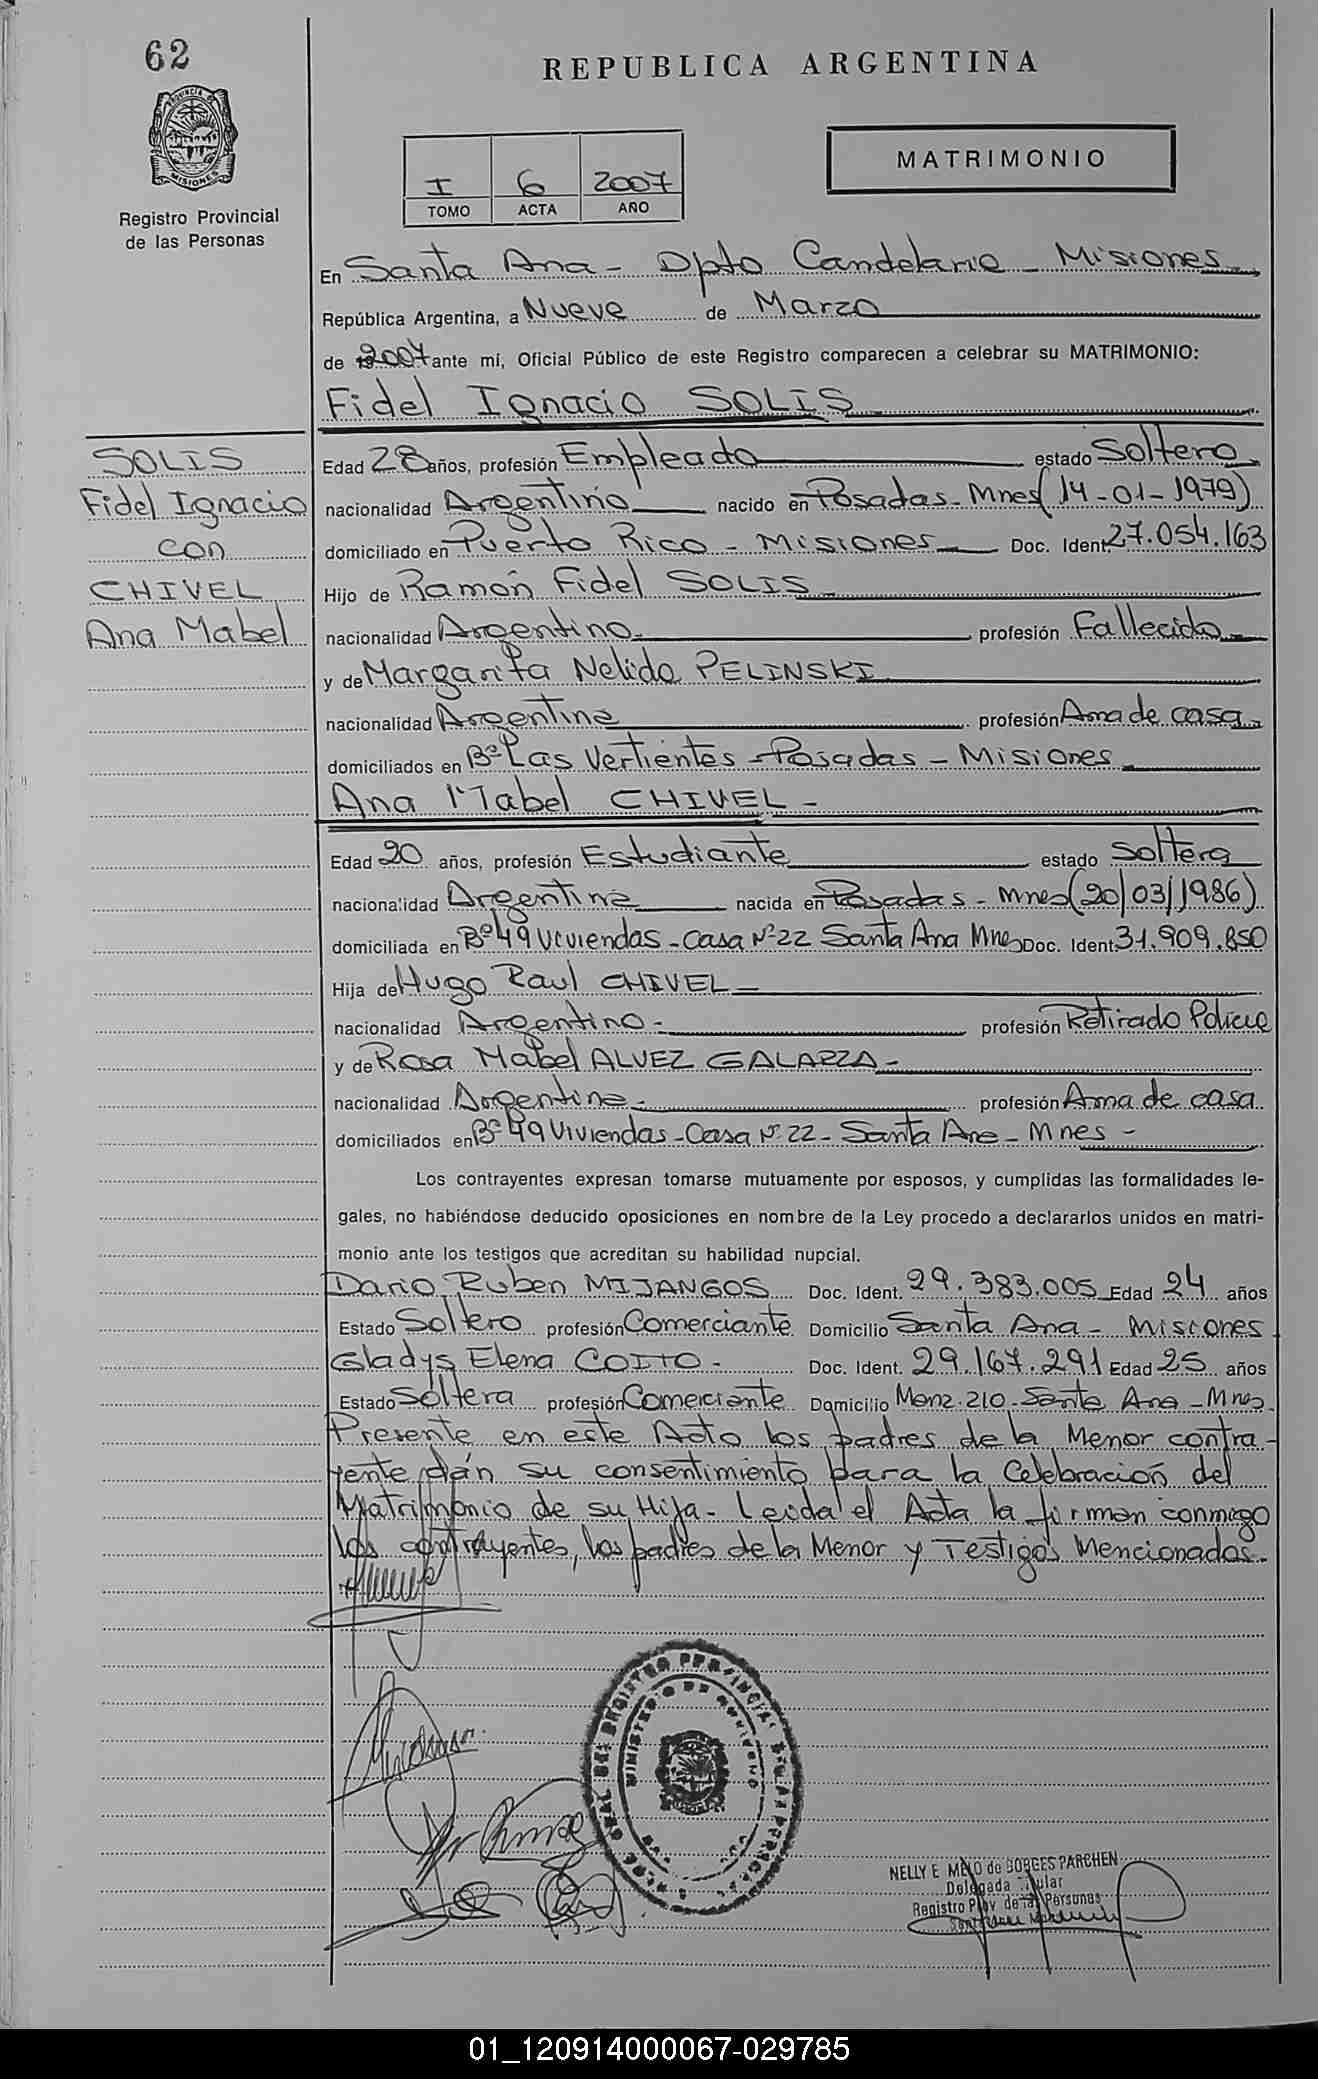 62
REPUBLICA ARGENTINA
PROVINCIA DE
MISIONES
Registro Provincial
de las Personas
I 6 2007
TOMO ACTA AÑO
MATRIMONIO
En Santa Ana - Dpto Candelaria - Misiones
República Argentina, a Nueve de Marzo
de 2007 ante mi, Oficial Público de este Registro comparecen a celebrar su MATRIMONIO:
Fidel Ignacio SOLIS
SOLIS
Fidel Ignacio
con
CHIVEL
Ana Mabel
Edad 28 años, profesión Empleado estado Soltero
nacionalidad Argentino nacido en Posadas - Mnes (14-01-1979)
domiciliado en Puerto Rico - Misiones Doc. Ident. 27.054.163
Hijo de Ramón Fidel SOLIS
nacionalidad Argentino profesión Fallecido
y de Margarita Nelida PELINSKI
nacionalidad Argentina profesión Ama de casa
domiciliados en Bº Las Vertientes - Posadas - Misiones
Ana Mabel CHIVEL -
Edad 20 años, profesión Estudiante estado Soltera
nacionalidad Argentina nacida en Posadas - Mnes (20/03/1986)
domiciliada en Bº 49 Viviendas - Casa Nº 22 Santa Ana Mnes Doc. Ident. 31.909.850
Hija de Hugo Raul CHIVEL -
nacionalidad Argentino - profesión Retirado Policia
y de Rosa Mabel ALVEZ GALARZA -
nacionalidad Argentina - profesión Ama de casa
domiciliados en Bº 49 Viviendas - Casa Nº 22 - Santa Ana - Mnes -
Los contrayentes expresan tomarse mutuamente por esposos, y cumplidas las formalidades le-
gales, no habiéndose deducido oposiciones en nombre de la Ley procedo a declararlos unidos en matri-
monio ante los testigos que acreditan su habilidad nupcial.
Dario Ruben MIJANGOS Doc. Ident. 29.383.005 Edad 24 años
Estado Soltero profesión Comerciante Domicilio Santa Ana - Misiones
Gladys Elena COITO - Doc. Ident. 29.167.291 Edad 25 años
Estado Soltera profesión Comerciante Domicilio Manz. 210 - Santa Ana - Mnes.
Presente en este Acto los padres de la Menor contra-
yente dán su consentimiento para la Celebración del
Matrimonio de su Hija - Leida el Acta la firman conmigo
los contrayentes, los padres de la Menor y Testigos Mencionados.
REGISTRO PROVINCIAL
MINISTERIO DE GOBIERNO
NELLY E. MELO de BORGES PARCHEN
Delegada Titular
Registro Prov. de las Personas
01_120914000067-029785